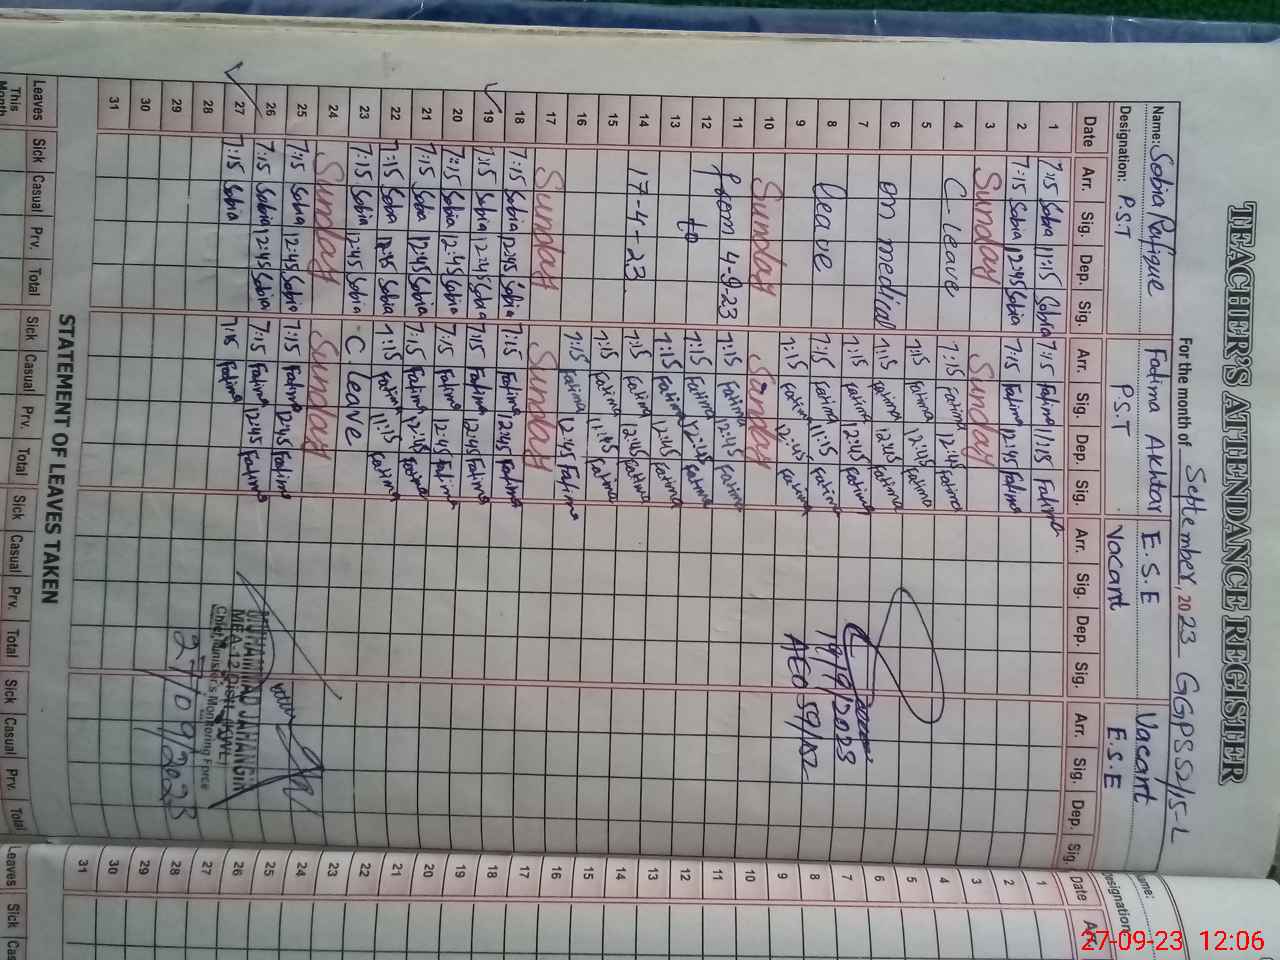 TEACHER'S ATTENDANCE REGISTER
For the month of September, 2023 GGPS 52/15-L
Name: Sobia Rafique Fatima Akhtar E.S.E Vacant
Designation: P.S.T P.S.T Vacant E.S.E
Date Arr. Sig. Dep. Sig. Arr. Sig. Dep. Sig. Arr. Sig. Dep. Sig. Arr. Sig. Dep. Sig.
1 7:15 Sobia 11:15 Sobia 7:15 Fatima 11:15 Fatima
2 7:15 Sobia 12:45 Sobia 7:15 Fatima 12:45 Fatima
3 Sunday Sunday
4 C-leave 7:15 Fatima 12:45 Fatima
5 7:15 Fatima 12:45 Fatima
6 on medical 7:15 Fatima 12:45 Fatima
7 7:15 Fatima 12:45 Fatima
8 leave 7:15 Fatima 11:15 Fatima 19/9/2023
9 7:15 Fatima 12:45 Fatima AEO 59/152
10 Sunday Sunday
11 from 4-9-23 7:15 Fatima 12:45 Fatima
12 to 7:15 Fatima 12:45 Fatima
13 7:15 Fatima 12:45 Fatima
14 17-4-23 7:15 Fatima 12:45 Fatima
15 7:15 Fatima 11:15 Fatima
16 7:15 Fatima 12:45 Fatima
17 Sunday Sunday
18 7:15 Sobia 12:45 Sobia 7:15 Fatima 12:45 Fatima
19 7:15 Sobia 12:45 Sobia 7:15 Fatima 12:45 Fatima
20 7:15 Sobia 12:45 Sobia 7:15 Fatima 12:45 Fatima
21 7:15 Sobia 12:45 Sobia 7:15 Fatima 12:45 Fatima
22 7:15 Sobia 12:45 Sobia 7:15 Fatima 11:15 Fatima
23 7:15 Sobia 12:45 Sobia C leave
24 Sunday Sunday
25 7:15 Sobia 12:45 Sobia 7:15 Fatima 12:45 Fatima
26 7:15 Sobia 12:45 Sobia 7:15 Fatima 12:45 Fatima
27 7:15 Sobia 7:15 Fatima
28
29
30
31
MUHAMMAD JAHANGIR
MEA-12 Distt. (KWL)
Chief Minister's Monitoring Force
27/09/2023
STATEMENT OF LEAVES TAKEN
Leaves Sick Casual Prv. Total Sick Casual Prv. Total Sick Casual Prv. Total Sick Casual Prv. Total
This
Month
Name:
Designation
Date Arr.
1
2
3
4
5
6
7
8
9
10
11
12
13
14
15
16
17
18
19
20
21
22
23
24
25
26
27
28
29
30
31
Leaves Sick
27-09-23 12:06